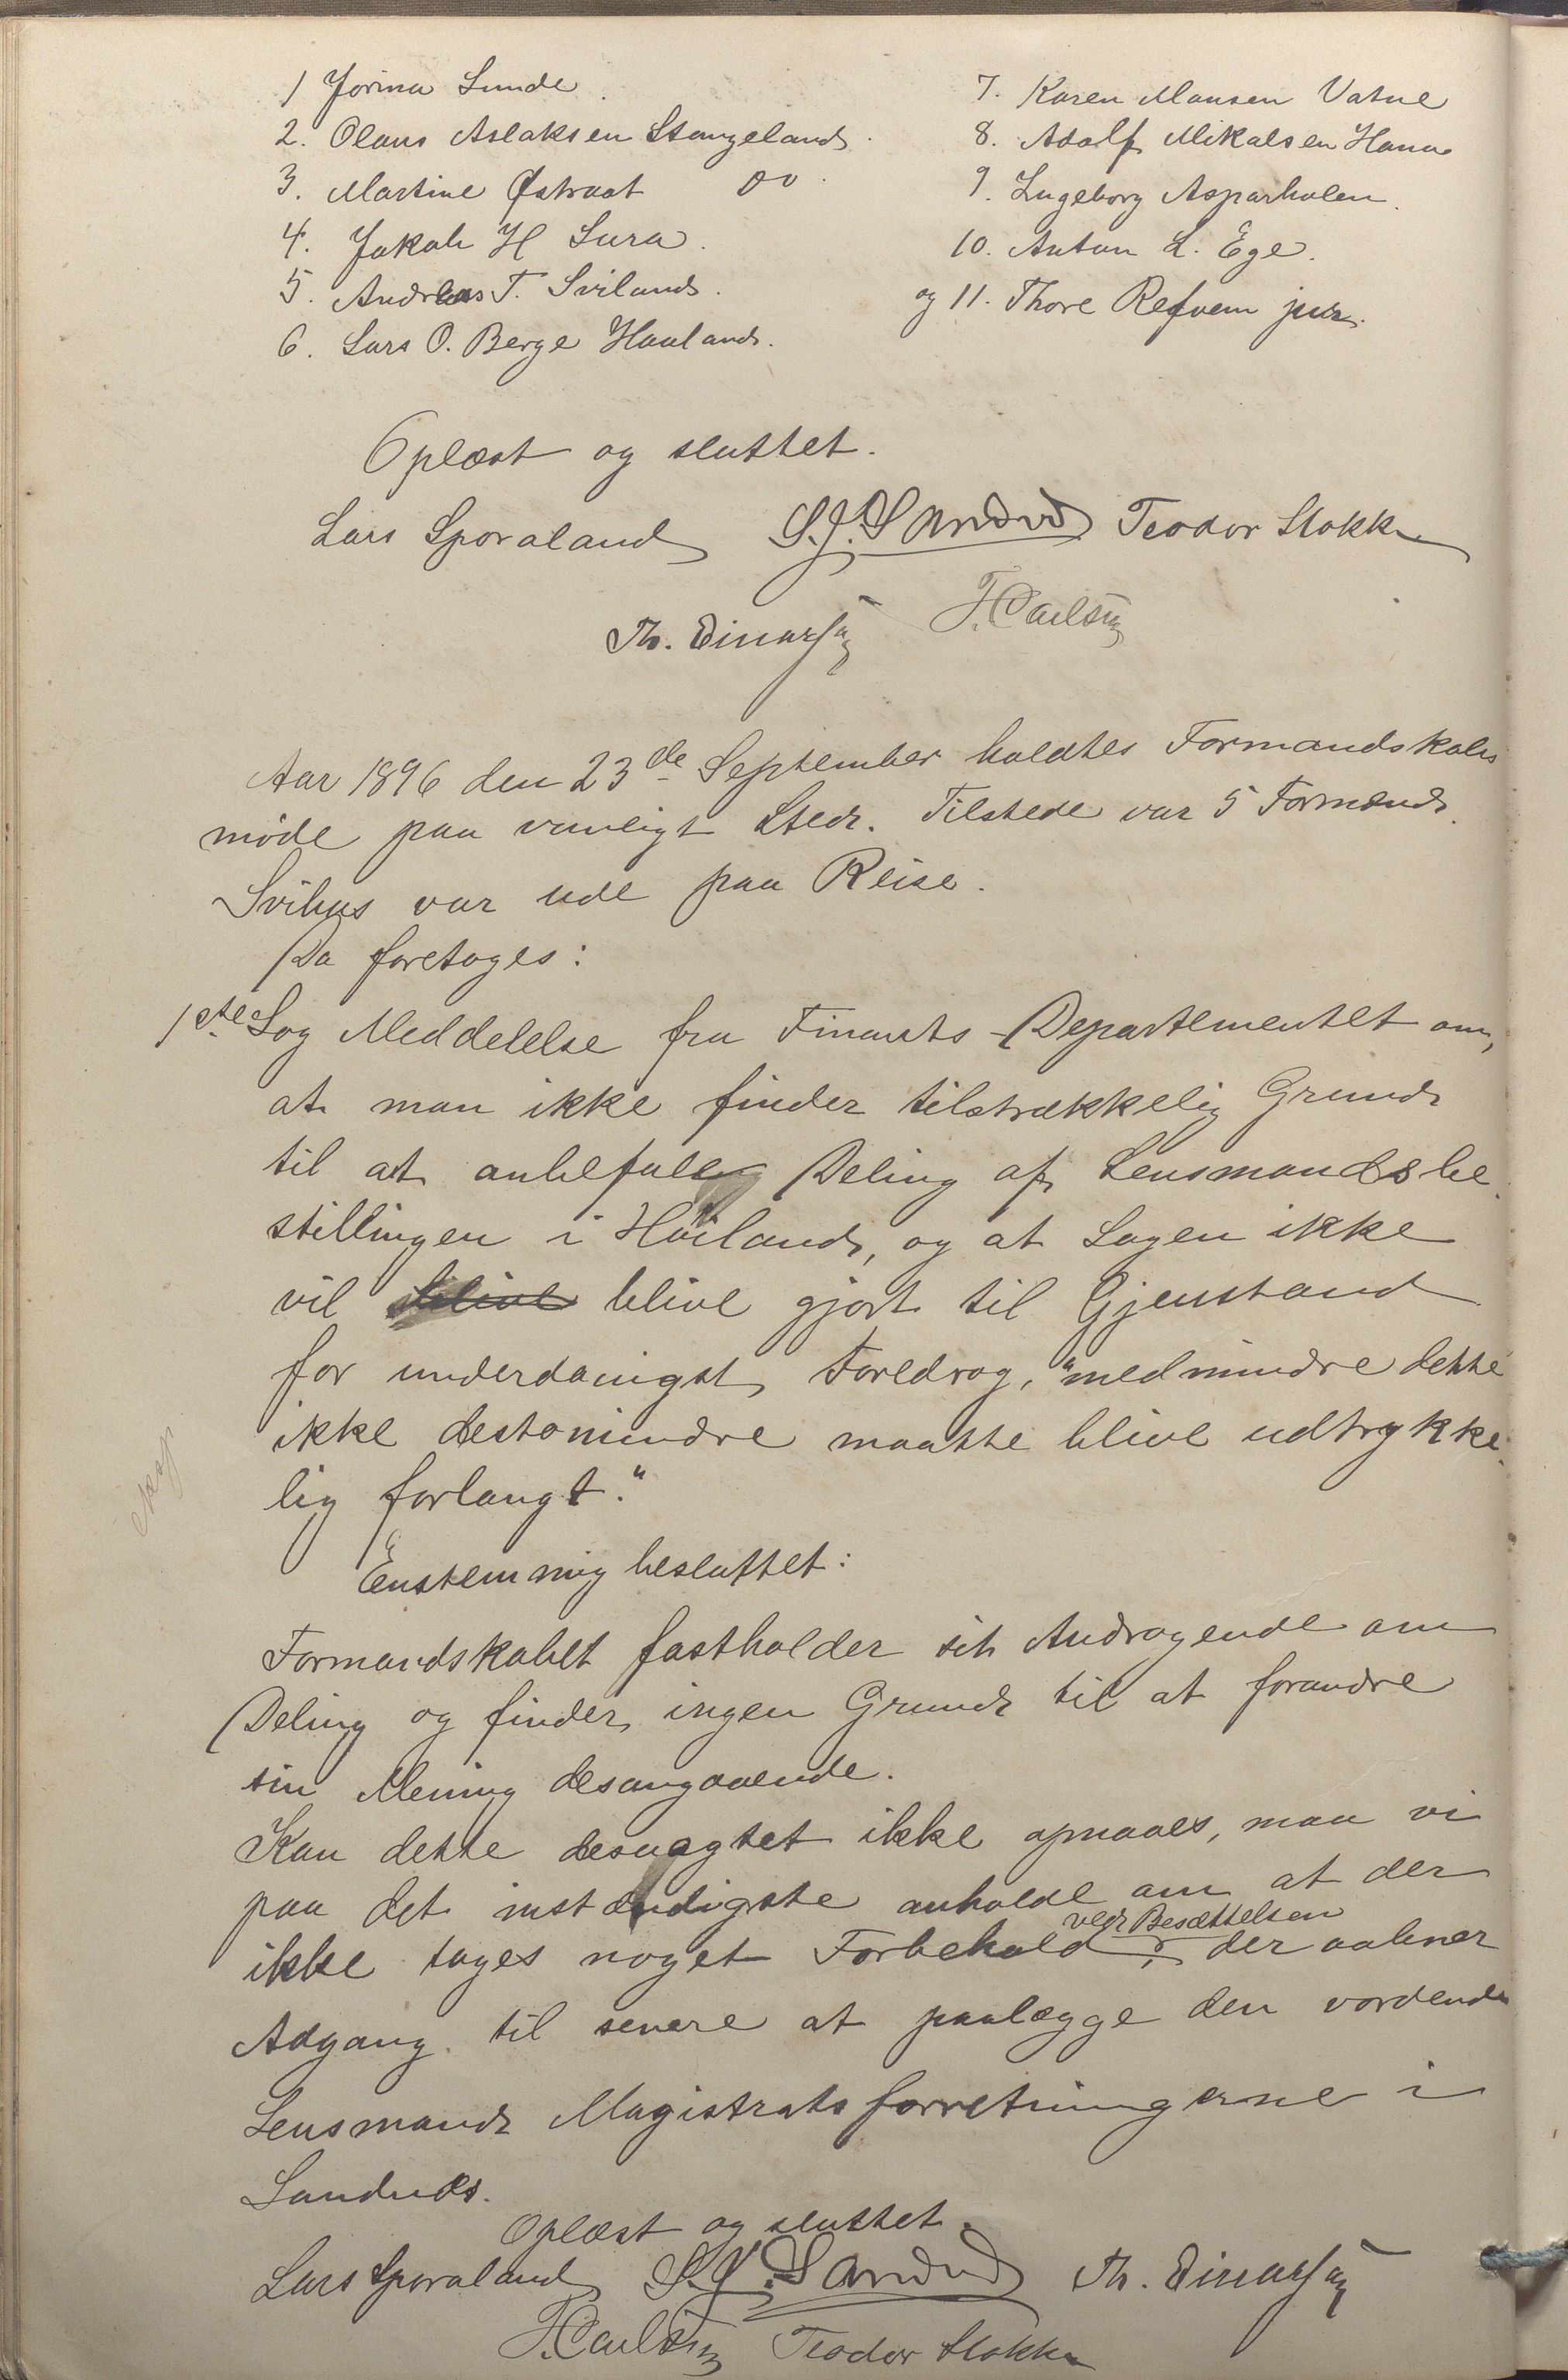 1 Jorina Lunde.
2. Olaus Aslaksen Stangeland.
3. Martine Østraat do.
4. Jakob H Lura.
5. Andreas T. Sviland.
6. Lars O. Berge Haaland.
7. Karen Monsen Vatne
8. Adolf Mikalsen Hana
9. Ingeborg Asparholen.
10. Anton L. Ege.
og 11. Thore Refvem jun.
Oplæst og sluttet.
Lars Sporaland S. J. Sandved Teodor Stokke
Th. Einarsen T. Carlsen
Aar 1896 den 23de September holdtes Formandskabs
møde paa vanligt Sted. Tilstede var 5 Formænd.
Svihus var ude paa Reise.
Da foretoges:
1ste Sag Meddelelse fra Finants-Departementet om,
at man ikke finder tilstrækkelig Grund
til at anbefale Deling af Lensmandsbe-
stillingen i Høiland, og at Sagen ikke
vil blive gjort til Gjenstand
for underdanigst Foredrag, "medmindre dette
ikke destomindre maatte blive udtrykke-
lig forlangt."
Enstemmig besluttet:
Formandskabet fastholder sit Andragende om
Deling og finder ingen Grund til at forandre
sin Mening desangaaende.
Kan dette desuagtet ikke opnaaes, maa vi
paa det instændigste anholde om at der
ved Besættelsen
ikke tages noget Forbehold, der aabner
Adgang til senere at paalægge den vordende
Lensmand Magistratsforretningerne i
Sandnes.
Oplæst og sluttet.
Lars Sporaland S. J. Sandved Th. Einarsen
T. Carlsen Teodor Stokke